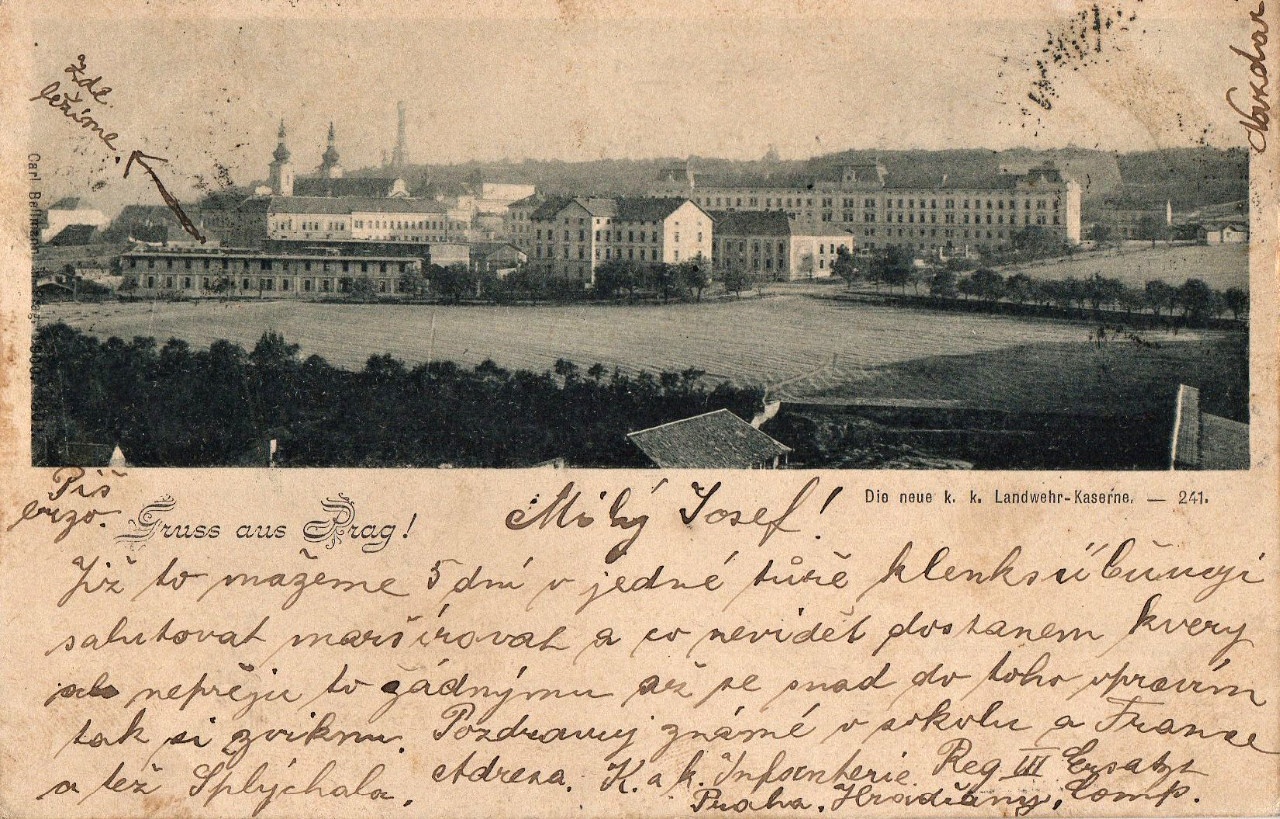 Zde
ležíme.
Nazdar
Carl Bellmann
Die neue k. k. Landwehr-Kaserne. — 241.
Piš
brzo.
Gruss aus Prag!
Milý Josef!
Již to mažeme 5 dní v jedné tůře klenksü
salutovat maršírovat a co nevidět dostanem kvery
ale nepřeju to žádnýmu až se snad do toho vpravím
tak si zviknu. Pozdravuj známé v sokolu a France
a též Splýchala.
Adresa. K. a k. Infanterie Reg III Ersatz
Praha. Hradčany. Comp.